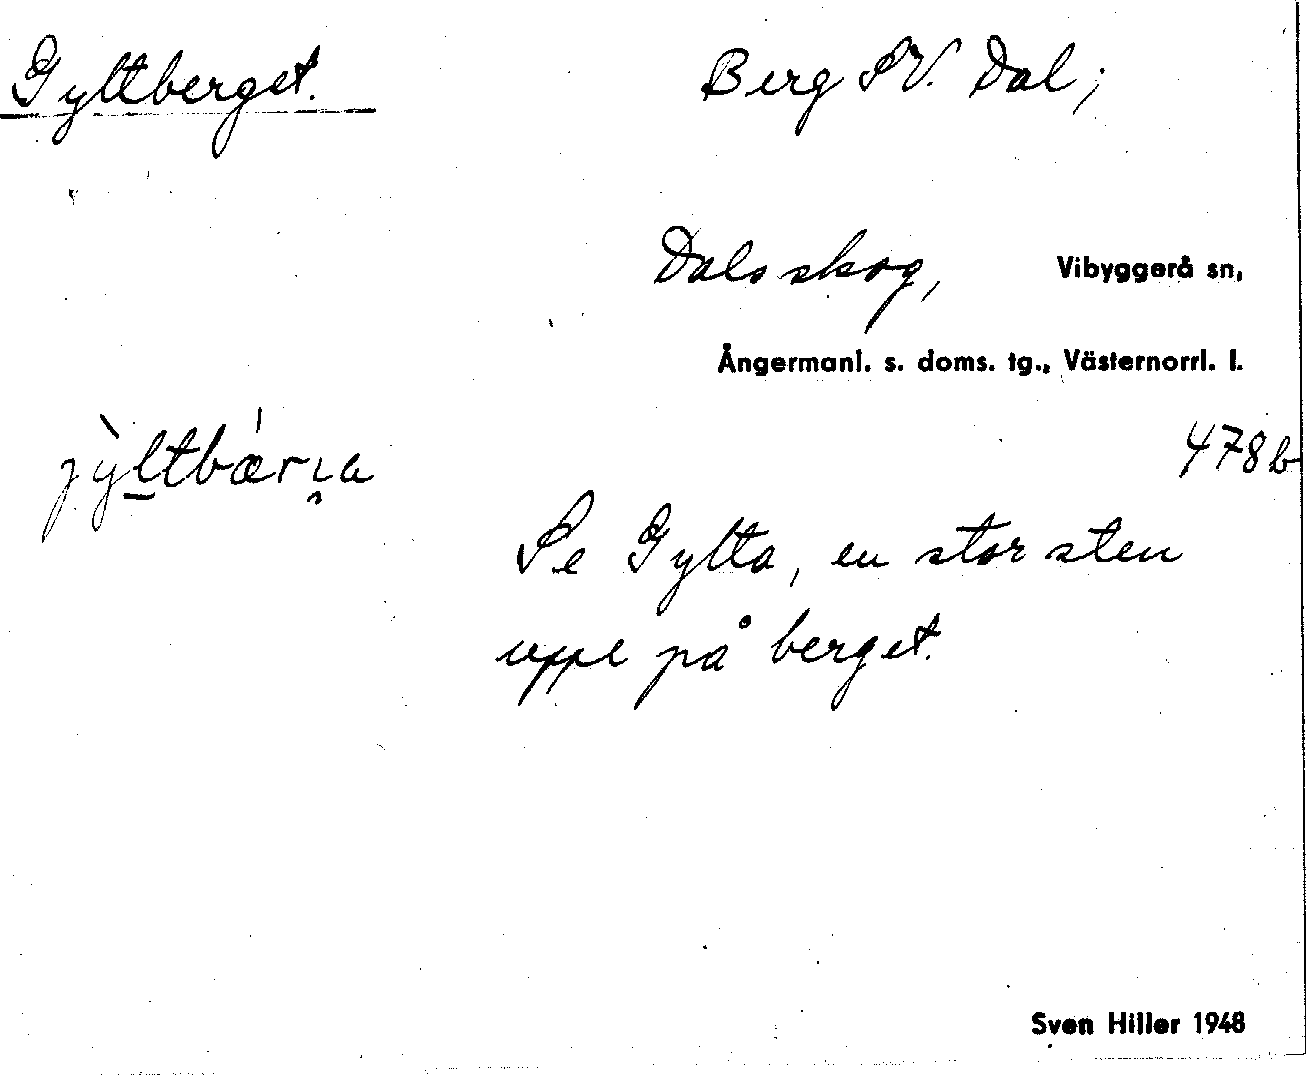 Gyltberget. Berg SV. Dal;
Dals skog, Vibyggerå sn,
Ångermanl. s. doms. tg., Västernorrl. l.
478b
Se Gylta, en stor sten
uppe på berget.
Sven Hiller 1948